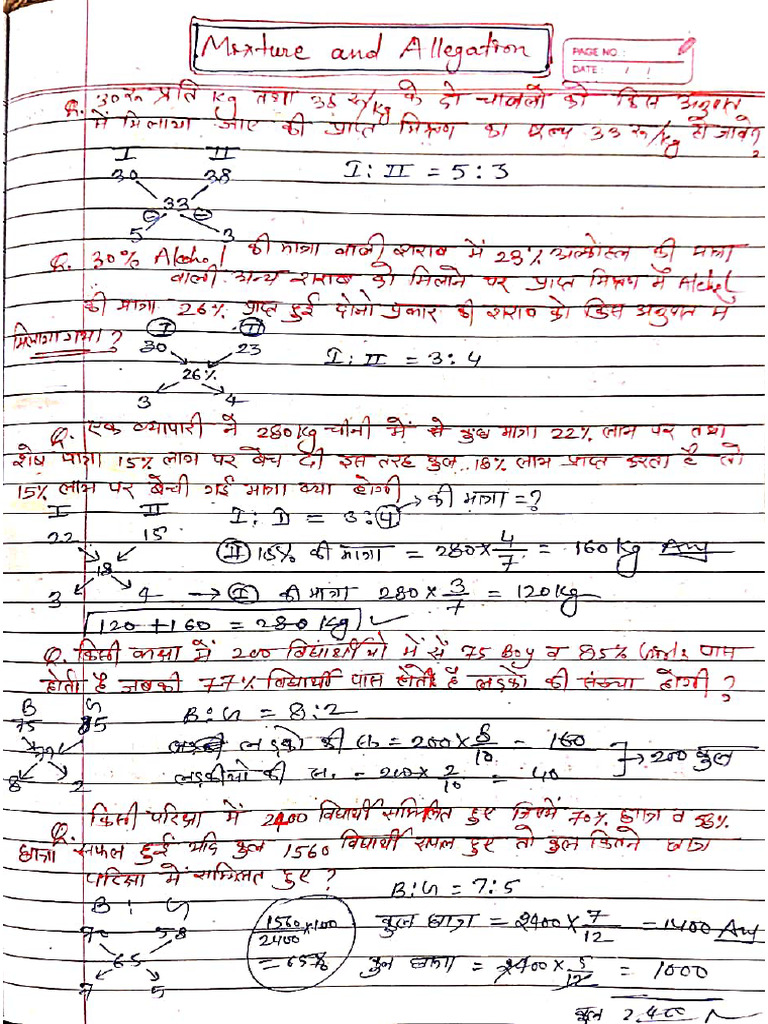 Mixture and Allegation
PAGE NO.:
DATE: / /
Q. 30 रू प्रति kg तथा 38 रू/kg के दो चावलों को किस अनुपात
में मिलाया जाए की प्राप्त मिश्रण का मूल्य 33 रू/kg हो जावे?
I II
30 38
I : II = 5 : 3
33
5 3
Q. 30% Alcohol की मात्रा वाली शराब में 23% अल्कोहल की मात्रा
वाली अन्य शराब को मिलाने पर प्राप्त मिश्रण में Alchol
की मात्रा 26% प्राप्त हुई दोनो प्रकार की शराब को किस अनुपात में
मिलाया गया?
I II
30 23
I : II = 3 : 4
26%
3 4
Q. एक व्यापारी ने 280 kg चीनी में से कुछ मात्रा 22% लाभ पर तथा
शेष मात्रा 15% लाभ पर बेच दी इस तरह कुल 18% लाभ प्राप्त करता है तो
15% लाभ पर बेची गई मात्रा क्या होगी
I II
I : II = 3 : 4 → की मात्रा = ?
22 15
II 15% की मात्रा = 280 × 4/7 = 160 kg Ans
18
3 4 → I की मात्रा 280 × 3/7 = 120 kg
120 + 160 = 280 kg
Q. किसी कक्षा में 200 विद्यार्थीयो में से 75 Boy व 85% Girls पास
होती है जबकी 77% विद्यार्थी पास होती है लड़को की संख्या होगी?
B G
75 85
B : G = 8 : 2
77
लड़को की सं० = 200 × 8/10 = 160
8 2
लड़कीयो की सं. = 200 × 2/10 = 40
→ 200 कुल
Q. किसी परिक्षा में 2400 विद्यार्थी सम्मिलित हुए जिनमें 70% छात्र व 58%
छात्रा सफल हुई यदि कुल 1560 विद्यार्थी सफल हुए तो कुल कितने छात्र
परिक्षा में सम्मिलत हुए?
B : G = 7 : 5
B : G
70 58
1560/2400 × 100
= 65%
कुल छात्र = 2400 × 7/12 = 1400 Ans
65
कुल छात्रा = 2400 × 5/12 = 1000
7 5
कुल 2400